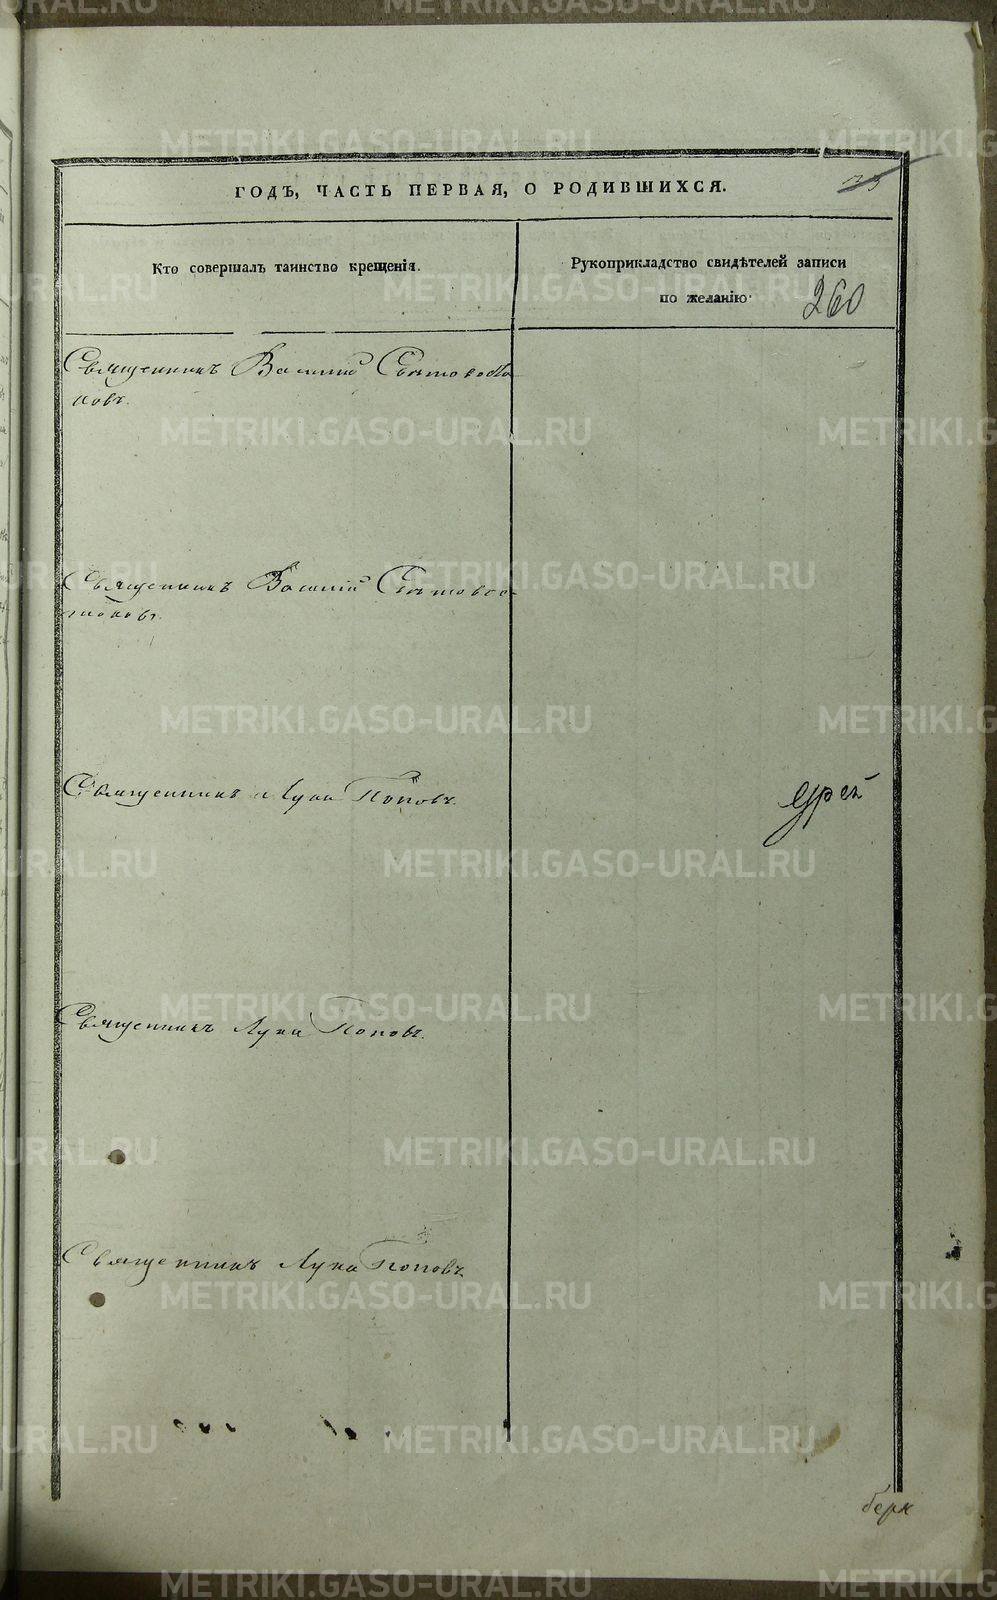 ГОДЪ, ЧАСТЬ ПЕРВАЯ, О РОДИВШИХСЯ.
Кто совершалъ таинство крещенія.
Рукоприкладство свидѣтелей записи
по желанію
260
Священникъ Василий
повъ.
Священникъ Василій
Священникъ Лука Поповъ.
Священникъ Лука Поповъ.
Священникъ Лука Поповъ
METRIKI.GASO-URAL.RU